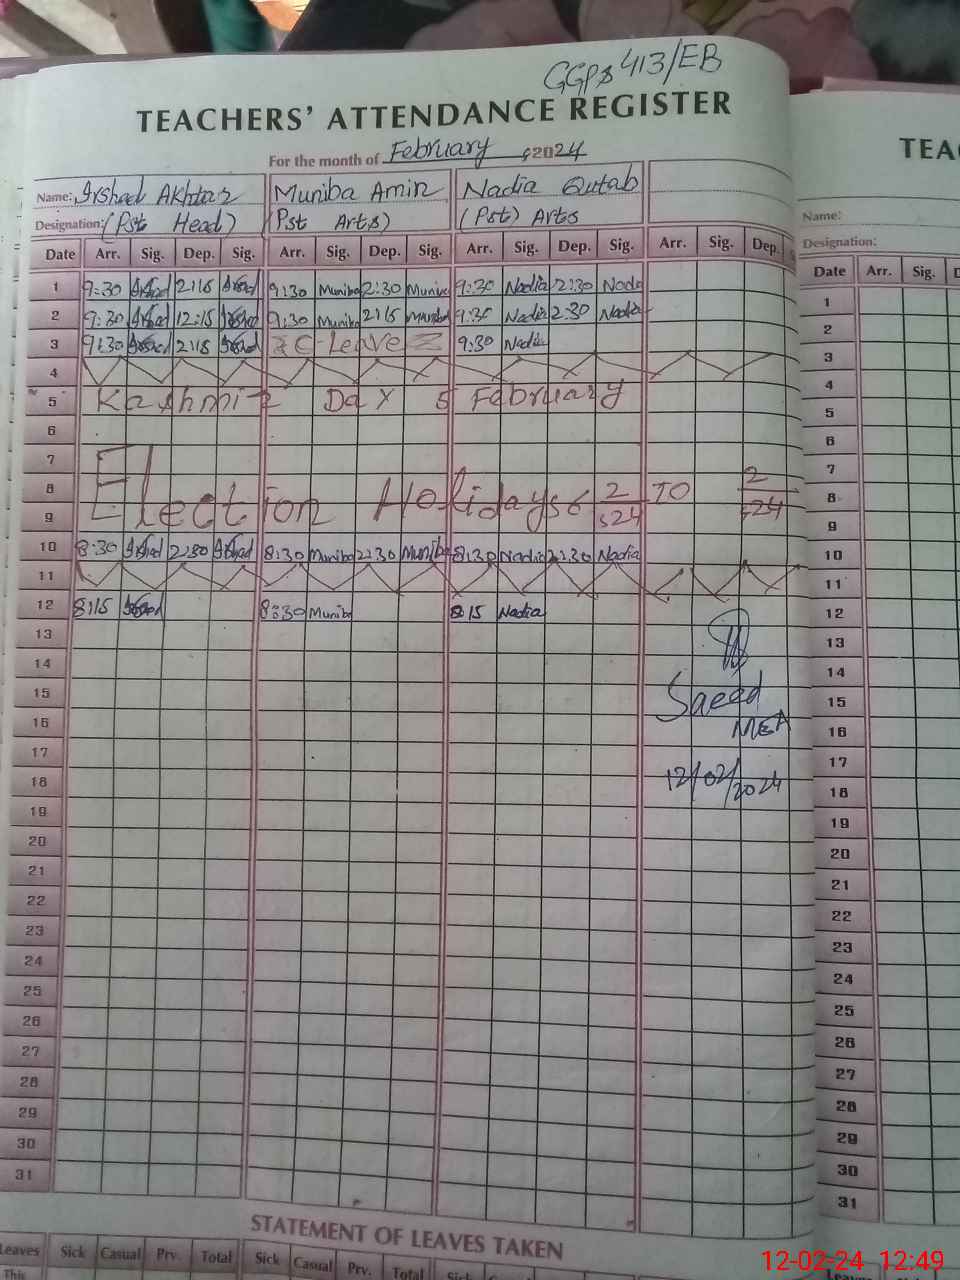 GGPS 413/EB
TEACHERS' ATTENDANCE REGISTER
For the month of February ,2024
Name: Irshad Akhtar Muniba Amin Nadia Qutab
Designation: (Pst Head) (Pst Arts) (Pst) Arts
Date Arr. Sig. Dep. Sig. Arr. Sig. Dep. Sig. Arr. Sig. Dep. Sig. Arr. Sig. Dep.
1 9:30 Irshad 2:15 Irshad 9:30 Muniba 2:30 Muniba 9:30 Nadia 2:30 Nadia
2 9:30 Irshad 12:15 Irshad 9:30 Muniba 2:15 Muniba 9:30 Nadia 2:30 Nadia
3 9:30 Irshad 2:15 Irshad C-Leave 9:30 Nadia
4
5 Kashmir Day 5 February
6
7
8 Election Holidays 6 2/,24 TO 2/,24
9
10 8:30 Irshad 2:30 Irshad 8:30 Muniba 2:30 Muniba 8:30 Nadia 2:30 Nadia
11
12 8:15 Irshad 8:30 Muniba 8:15 Nadia
13
14
15 Saeed
16 MEA
17
18 12/02/2024
19
20
21
22
23
24
25
26
27
28
29
30
31
STATEMENT OF LEAVES TAKEN
Leaves Sick Casual Prv. Total Sick Casual Prv. Total Sick
This
TEA
Name:
Designation:
Date Arr. Sig. D
1
2
3
4
5
6
7
8
9
10
11
12
13
14
15
16
17
18
19
20
21
22
23
24
25
26
27
28
29
30
31
Leaves
12-02-24 12:49